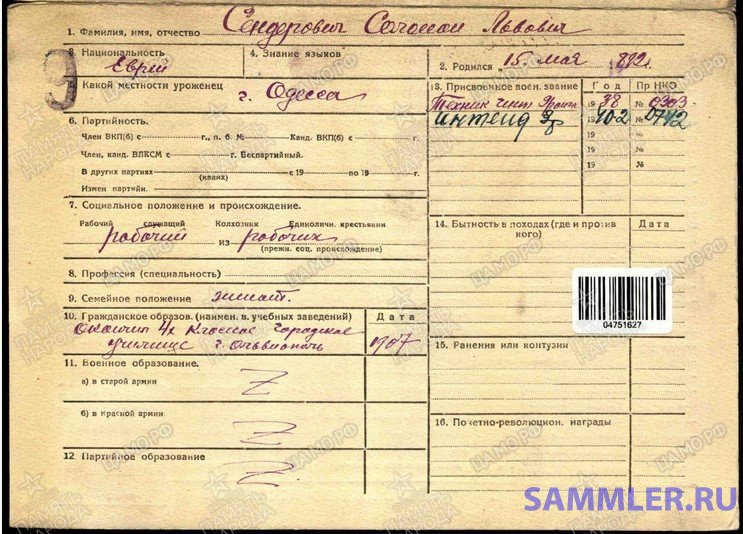 1. Фамилия, имя, отчество Сендерович Соломон Львович
2. Родился 15. мая 1892.
3. Национальность Еврей
4. Знание языков
5. Какой местности уроженец
г. Одесса
6. Партийность.
Член ВКП(б) с г., п. б. № Канд. ВКП(б) с г.
Член, канд. ВЛКСМ с г. Беспартийный.
В других партиях с 19 по 19 г.
(каких)
Измен партийн.
7. Социальное положение и происхождение.
Рабочий служащий Колхозник Единоличн. крестьянин
рабочий из рабочих
(прежн. соц. происхождение)
8. Профессия (специальность)
9. Семейное положение женат.
10. Гражданское образов. (наимен. в. учебных заведений) Дата
Окончил 4х классное городское
училище г. Ольвиополь 1907
11. Военное образование.
а) в старой армии Z
б) в Красной армии Z
12. Партийное образование Z
13. Присвоенное воен. звание Год Пр НКО
Техник инт. 1 ранга 1938 № 0303
интенд 3р 1940-2 № 0742
19 №
19 №
14. Бытность в походах (где и против кого) Дата
04751627
15. Ранения или контузии
16. Почетно-революцион. награды
ПАМЯТЬ НАРОДА
ЦАМО.РФ
SAMMLER.RU